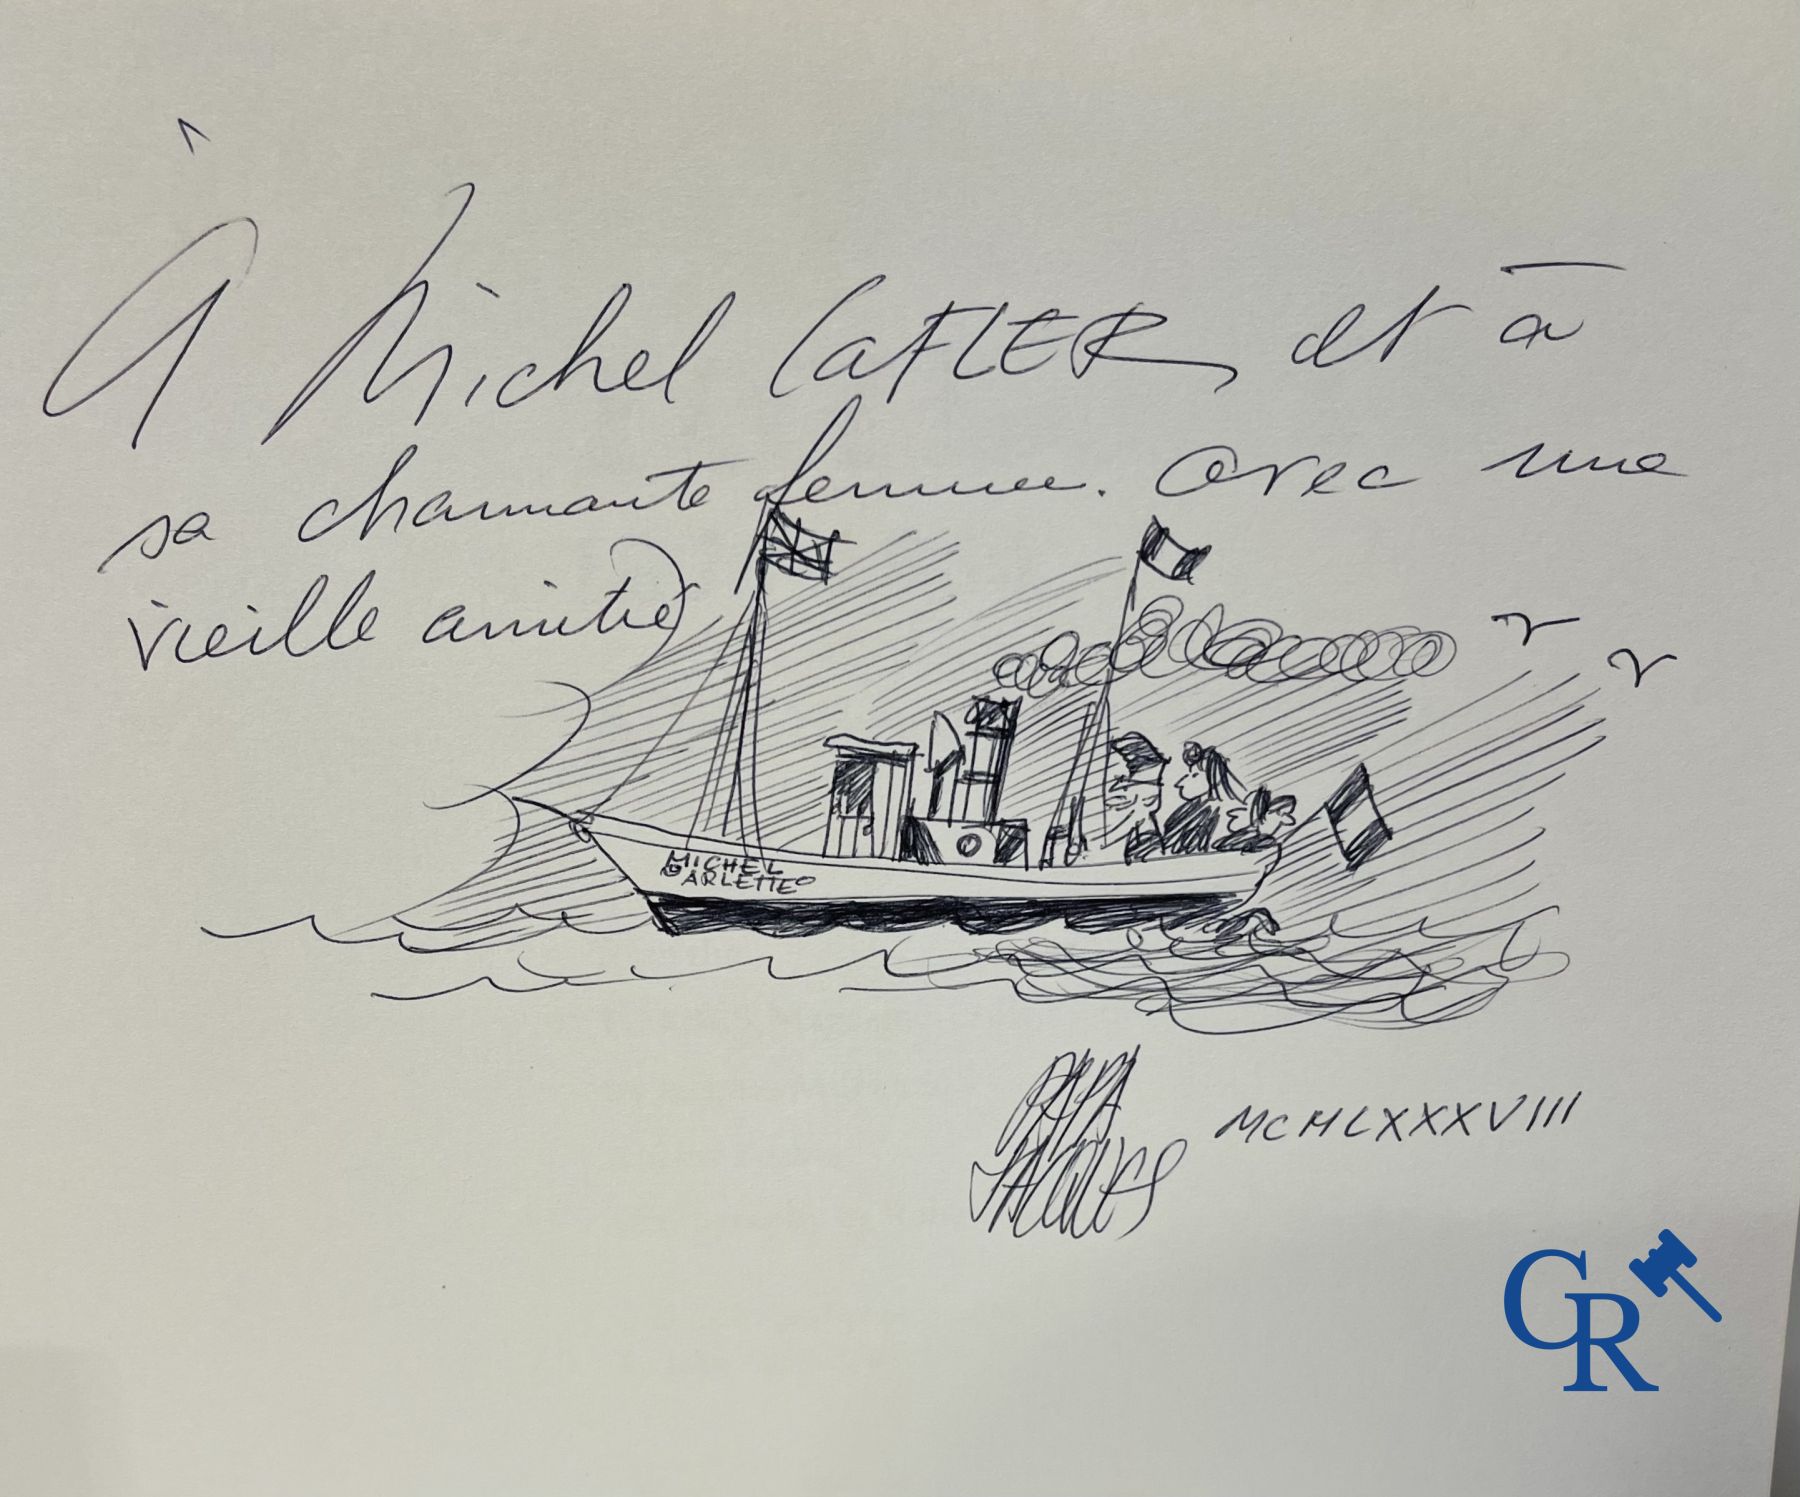 À Michel LaFLER et à
sa charmante femme. avec une
vieille amitié
MICHEL
ARLETTE
PAPA
JACQUES
MCMLXXXVIII
GR